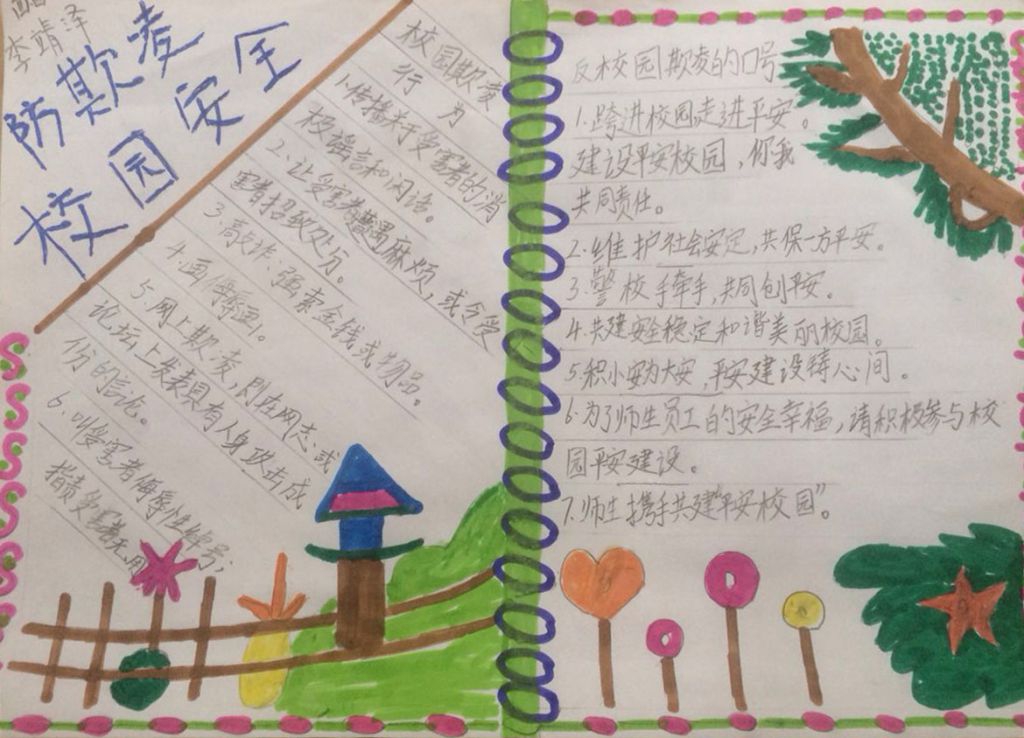 李靖泽
防欺凌
校园安全
校园欺凌
行为
1.传播关于受害者的消
极谣言和闲话。
2.让受害者遭遇麻烦,或令受
害者招致处分。
3.敲诈:强索金钱或物品。
4.画侮辱画。
5.网上欺凌,即在网志或
论坛上发表具有人身攻击成
份的言论。
6.叫受害者侮辱性绰号;
指责受害者无用
反校园欺凌的口号
1.跨进校园走进平安。
建设平安校园,你我
共同责任。
2.维护社会安定,共保一方平安。
3.警校手牵手,共同创平安。
4.共建安全稳定和谐美丽校园。
5.积小安为大安,平安建设铸心间。
6.为了师生员工的安全幸福,请积极参与校
园平安建设。
7.师生携手共建“平安校园”。